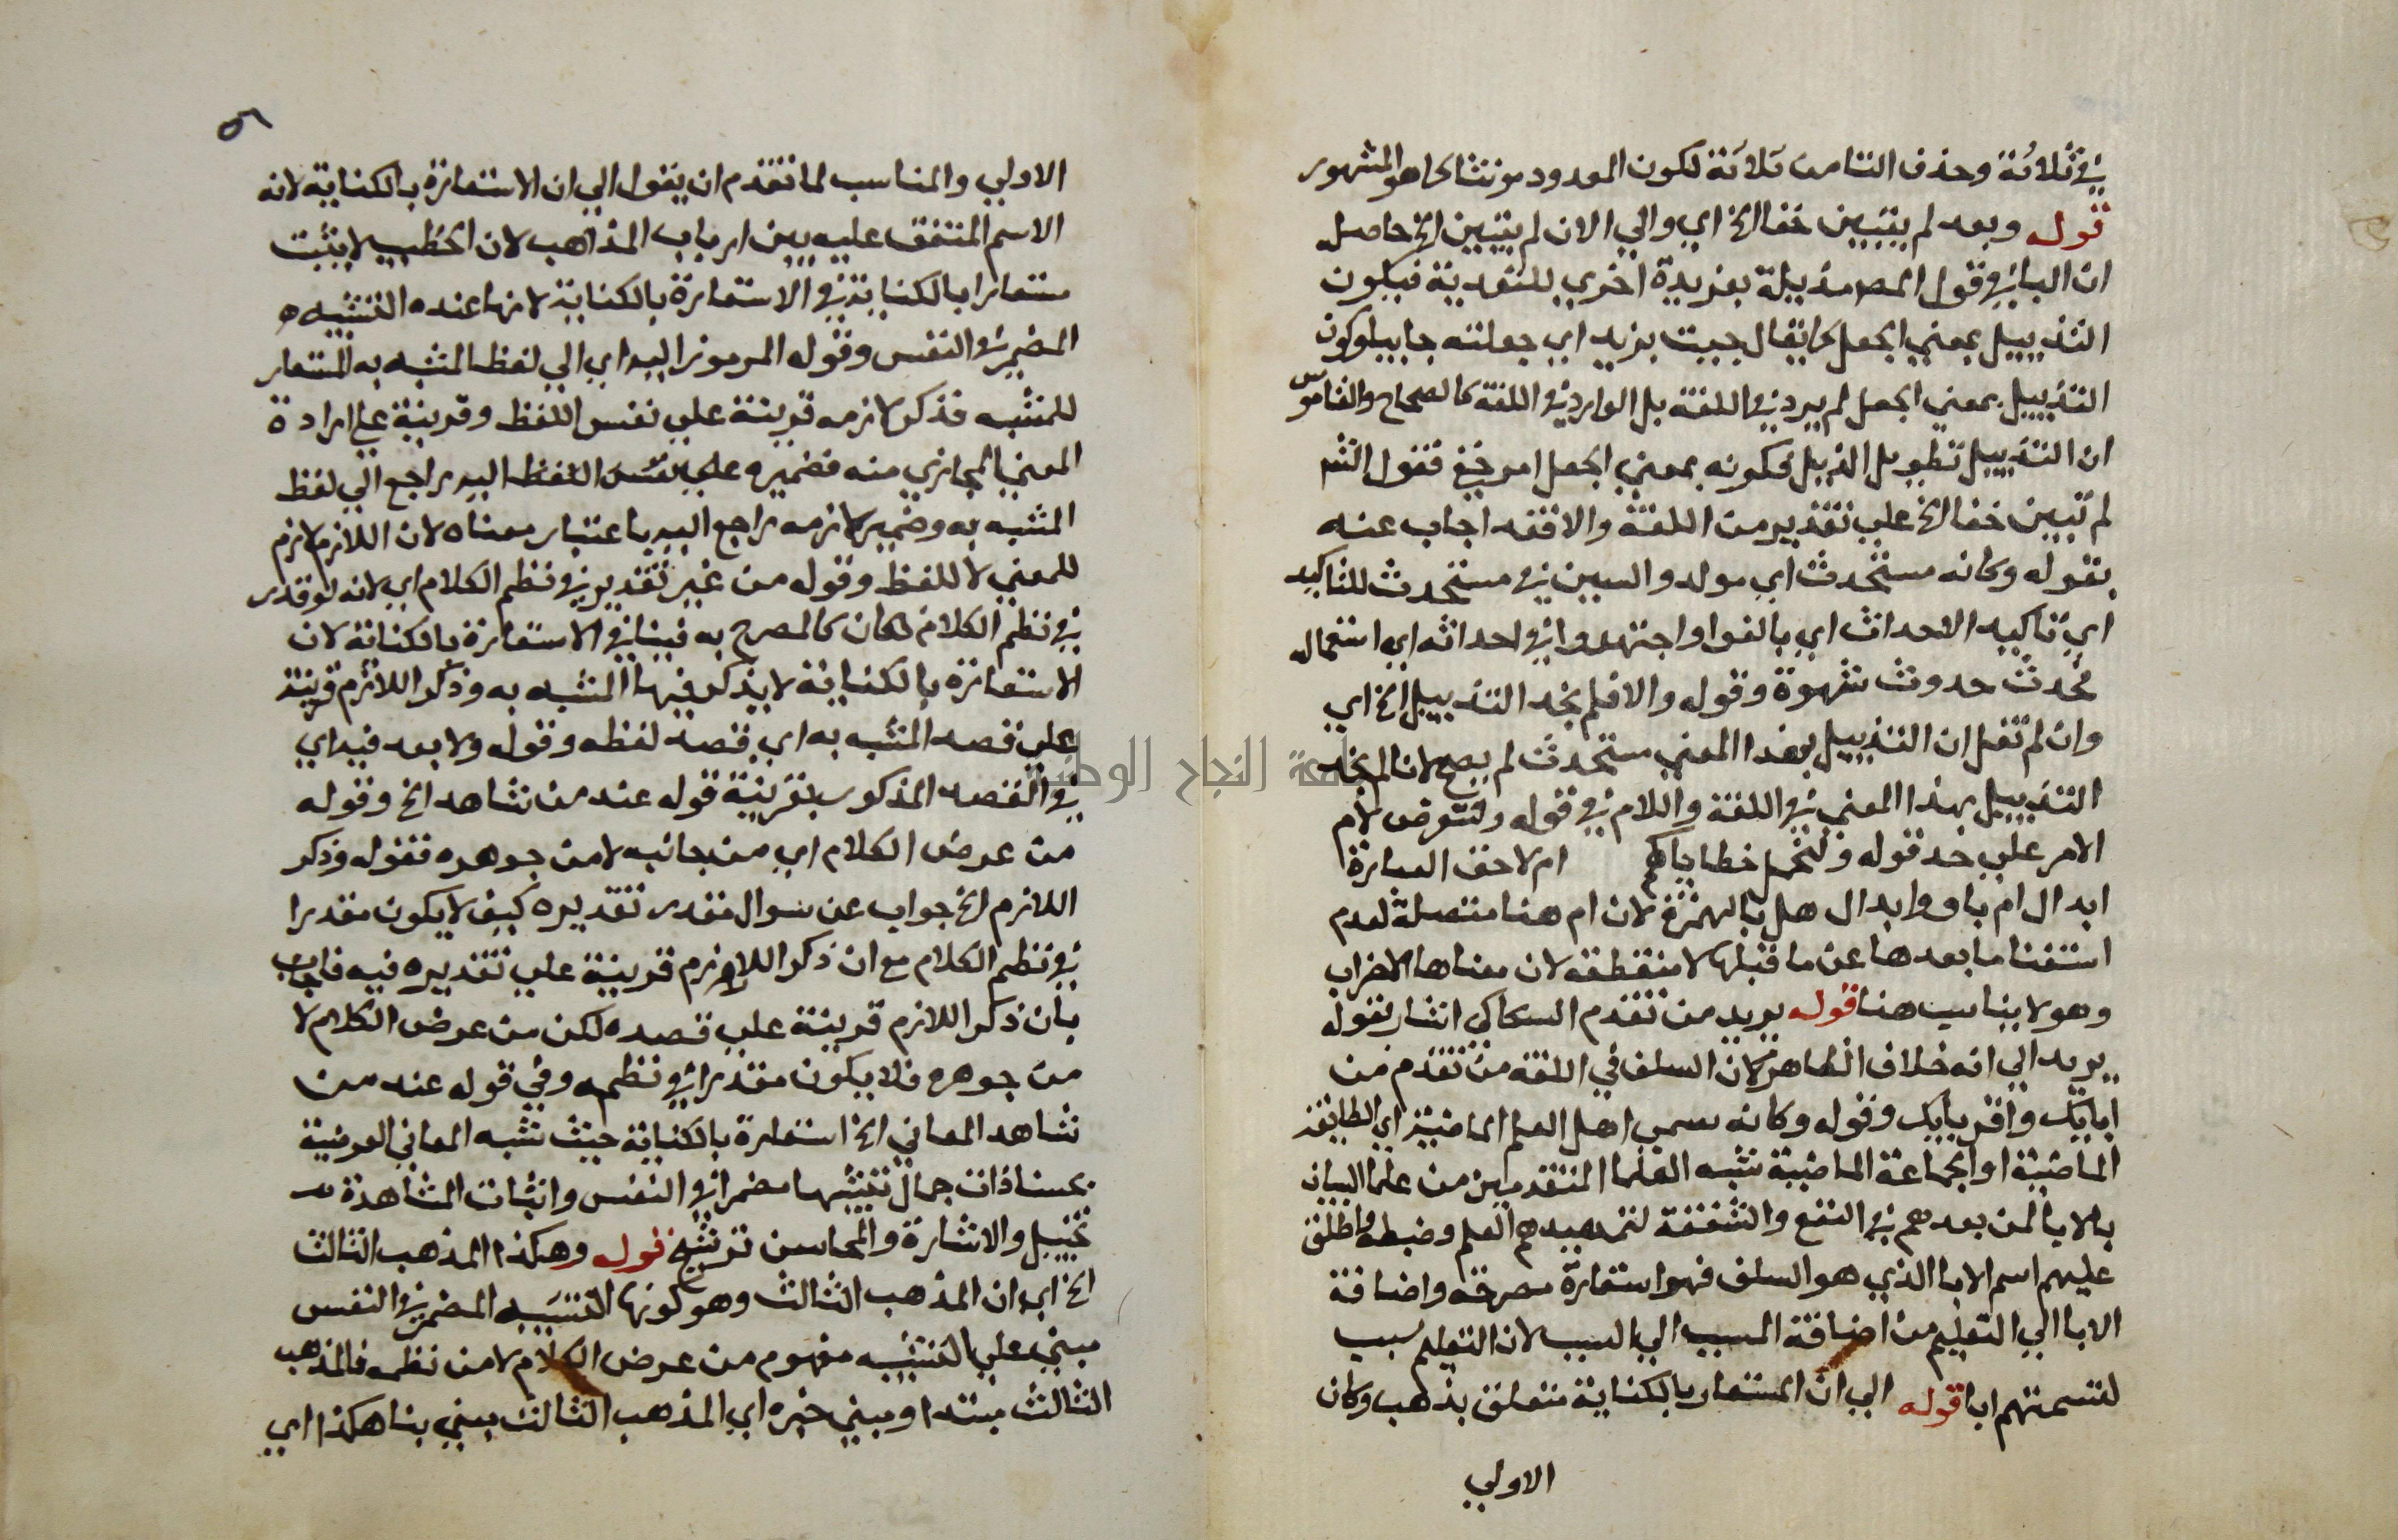 في ثلاثة وحذف التا من ثلاثة لكون المعدود مونثا كما هو المشهور
قوله وبعد لم يتبين خفا الخ اي والي الان لم يتبين الخ حاصله
ان البا في قول المص مذيلة بفريدة اخري للتعدية فيكون
التذييل بمعني الجعل كما يقال جيت بزيد اي جعلته جاييا وكون
التذييل بمعني الجعل لم يرد في اللغة بل الوارد في اللغة كالصحاح والقاموس
ان التذييل تطويل الذيل فكونه بمعني الجعل امر خفي فقول الش
لم تبين خفا الخ علي تقدير من اللغة والافقد اجاب عنه
بقوله وكانه مستحدث اي مولد والسين في مستحدث للتاكيد
اي تاكيد الاحداث اي بالغوا واجتهدوا في احداثه اي استعماله
محدث حدوث شهوة وقوله والا فلم نجد التذييل الخ اي
وان لم تقل ان التذييل بهذا المعني مستحدث لم يصح لانا لم نجد
التذييل بهذا المعني في اللغة واللام في قوله ولنتعرض لام
الامر علي حد قوله ولنحمل خطاياكم ام لا حق العبارة
ابدال ام باو وابدال هل بالهمزة لان ام هنا متصلة لعدم
استغنا ما بعدها عن ما قبلها لا منقطعة لان معناها الاضراب
وهو لا يناسب هنا قوله يريد من تقدم السكاكي اشار بقوله
يريد الي انه خلاف الظاهر لان السلف في اللغة من تقدم من
ابايك واقربايك وقوله وكانه سمي اهل العلم الماضيين اي الطايفة
الماضية او الجماعة الماضية شبه العلما المتقدمين من علما البيان
بالابا لمن بعدهم في النفع والشفقة لتمهيدهم العلم وضبطه واطلق
عليهم اسم الابا الذي هو السلف فهو استعارة مصرحة واضافة
الابا الي التعليم من اضافة المسبب الي السبب لان التعليم سبب
لتسميتهم ابا قوله الي ان المستعار بالكناية متعلق بذهب وكان
الاولي
٥
الاولي والمناسب لما تقدم ان يقول الي ان الاستعارة بالكناية لانه
الاسم المتفق عليه بين ارباب المذاهب لان الخطيب لا يثبت
مستعارا بالكناية في الاستعارة بالكناية لانها عنده التشبيه
المضمر في النفس وقوله المرموز اليه اي الي لفظ المشبه به المستعار
للمشبه فذكر لازمه قرينة علي نفس اللفظ وقرينة علي ارادة
المعني المجازي منه فضمير علي نفس اللفظ اليه راجع الي لفظ
المشبه به وضمير لازمه راجع اليه باعتبار معناه لان اللازم لازم
للمعني لا للفظ وقوله من غير تقدير في نظم الكلام اي لانه لو قدر
في نظم الكلام لكان كالمصرح به فينافي الاستعارة بالكناية لان
الاستعارة بالكناية لا يذكر فيها المشبه به وذكر اللازم قرينة
علي قصد المشبه به اي قصد لفظه وقوله ولا بعد فيه اي
في القصد المذكور بقرينة قوله عند من شاهد الخ وقوله
من عرض الكلام اي من جانبه لا من جوهره فقوله وذكر
اللازم الخ جواب عن سوال مقدر تقديره كيف لا يكون مقدرا
في نظم الكلام مع ان ذكر اللازم قرينة علي تقديره فيه فاجاب
بان ذكر اللازم قرينة علي قصده لكن من عرض الكلام لا
من جوهره فلا يكون مقدرا في نظمه وفي قوله عند من
شاهد المعاني الخ استعارة بالكناية حيث شبه المعاني العرضية
بحسنا ذات جمال تشبيها مضمرا في النفس واثبات المشاهدة
تخييل والاشارة والمحاسن ترشيح قوله وهكذا المذهب الثالث
الخ اي ان المذهب الثالث وهو كونها التشبيه المضمر في النفس
مبني علي التشبيه مفهوم من عرض الكلام لا من نظمه فالمذهب
الثالث مبتدا ومبني خبره اي المذهب الثالث مبني بنا هكذا اي
جامعة النجاح الوطنية